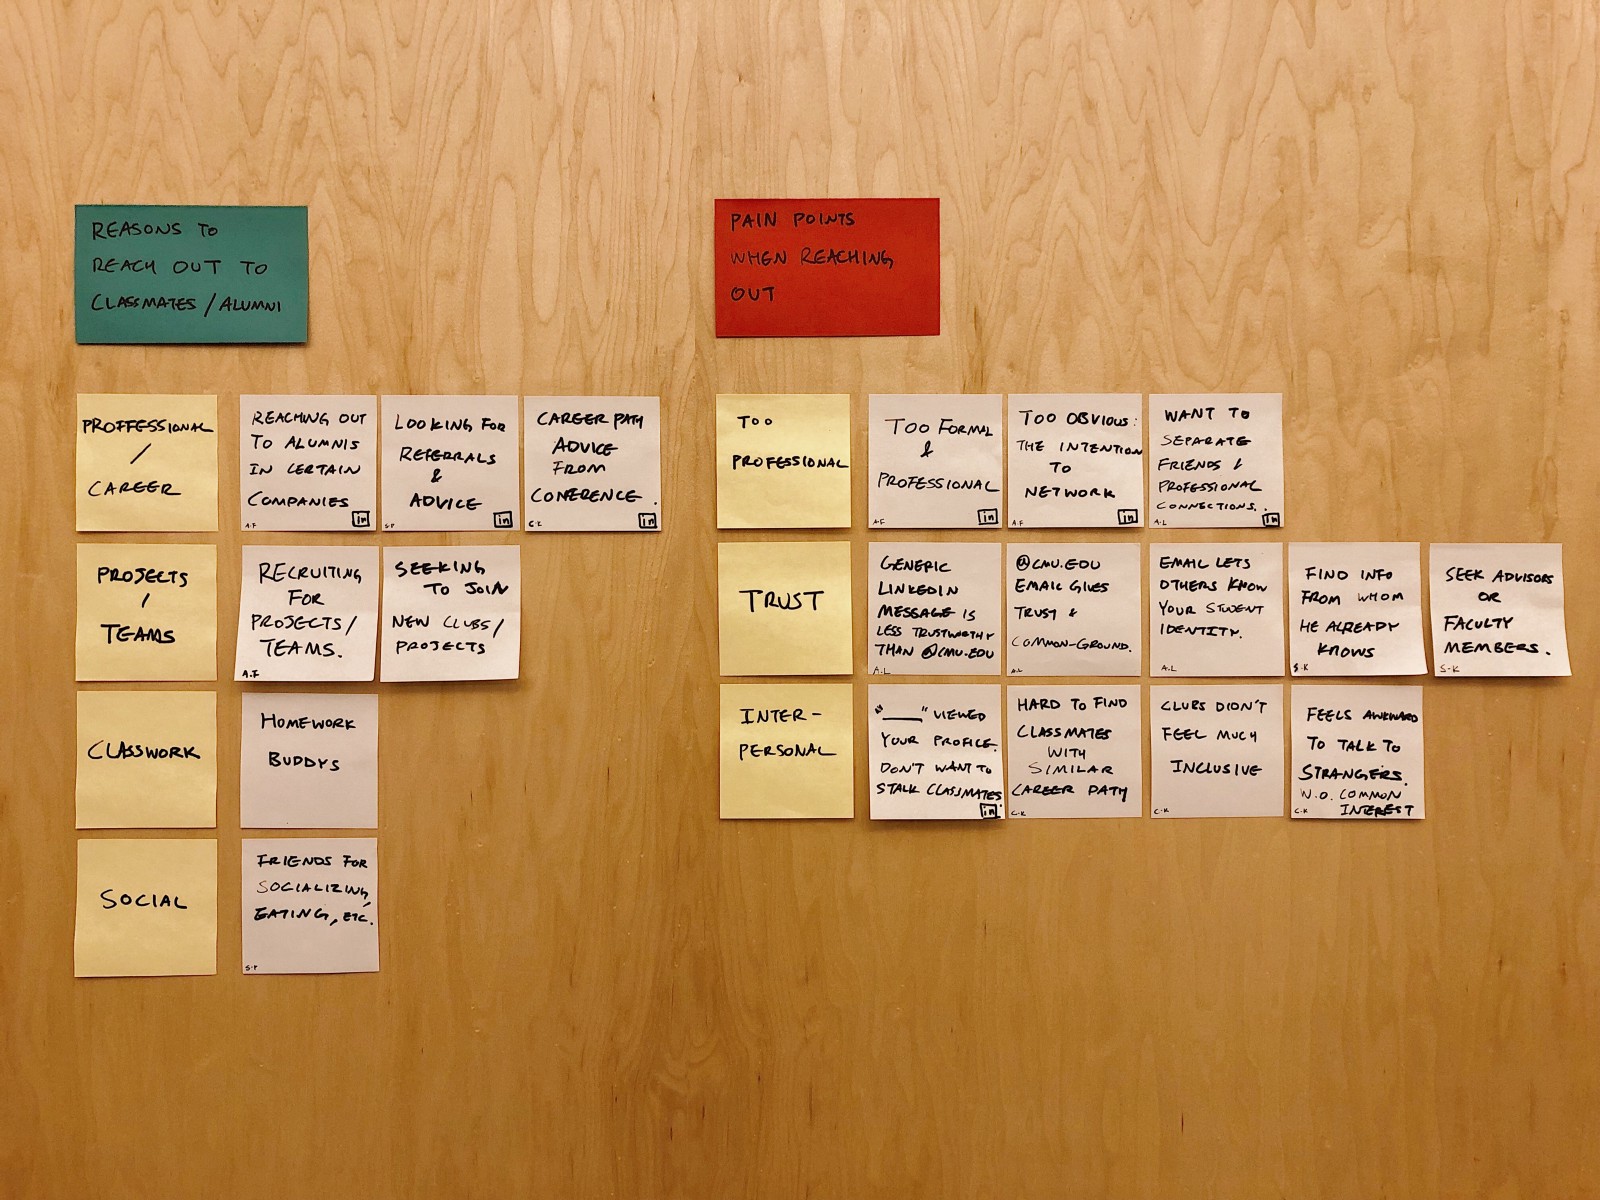 REASONS TO
REACH OUT TO
CLASSMATES / ALUMNI
PROFFESSIONAL
/
CAREER
REACHING OUT
TO ALUMNIS
IN CERTAIN
COMPANIES
in
A.F
LOOKING FOR
REFERRALS
&
ADVICE
in
S.P
CAREER PATH
ADVICE
FROM
CONFERENCE.
in
PROJECTS
/
TEAMS
RECRUITING
FOR
PROJECTS/
TEAMS.
A.F
SEEKING
TO JOIN
NEW CLUBS/
PROJECTS
CLASSWORK
HOMEWORK
BUDDYS
SOCIAL
FRIENDS FOR
SOCIALIZING,
EATING, ETC.
S.P
PAIN POINTS
WHEN REACHING
OUT
TOO
PROFESSIONAL
TOO FORMAL
&
PROFESSIONAL
in
A.F
TOO OBVIOUS:
THE INTENTION
TO
NETWORK
in
A.F
WANT TO
SEPARATE
FRIENDS &
PROFESSIONAL
CONNECTIONS.
in
A.L
TRUST
GENERIC
LINKEDIN
MESSAGE IS
LESS TRUSTWORTHY
THAN @CMU.EDU
A.L
@CMU.EDU
EMAIL GIVES
TRUST &
COMMON-GROUND.
A.L
EMAIL LETS
OTHERS KNOW
YOUR STUDENT
IDENTITY.
A.L
FIND INFO
FROM WHOM
HE ALREADY
KNOWS
S.K
SEEK ADVISORS
OR
FACULTY
MEMBERS.
S-K
INTER-
PERSONAL
"____" VIEWED
YOUR PROFILE.
DON'T WANT TO
STALK CLASSMATES.
in
HARD TO FIND
CLASSMATES
WITH
SIMILAR
CAREER PATH
C-K
CLUBS DIDN'T
FEEL MUCH
INCLUSIVE
C-K
FEELS AWKWARD
TO TALK TO
STRANGERS.
W.O. COMMON
INTEREST
C-K